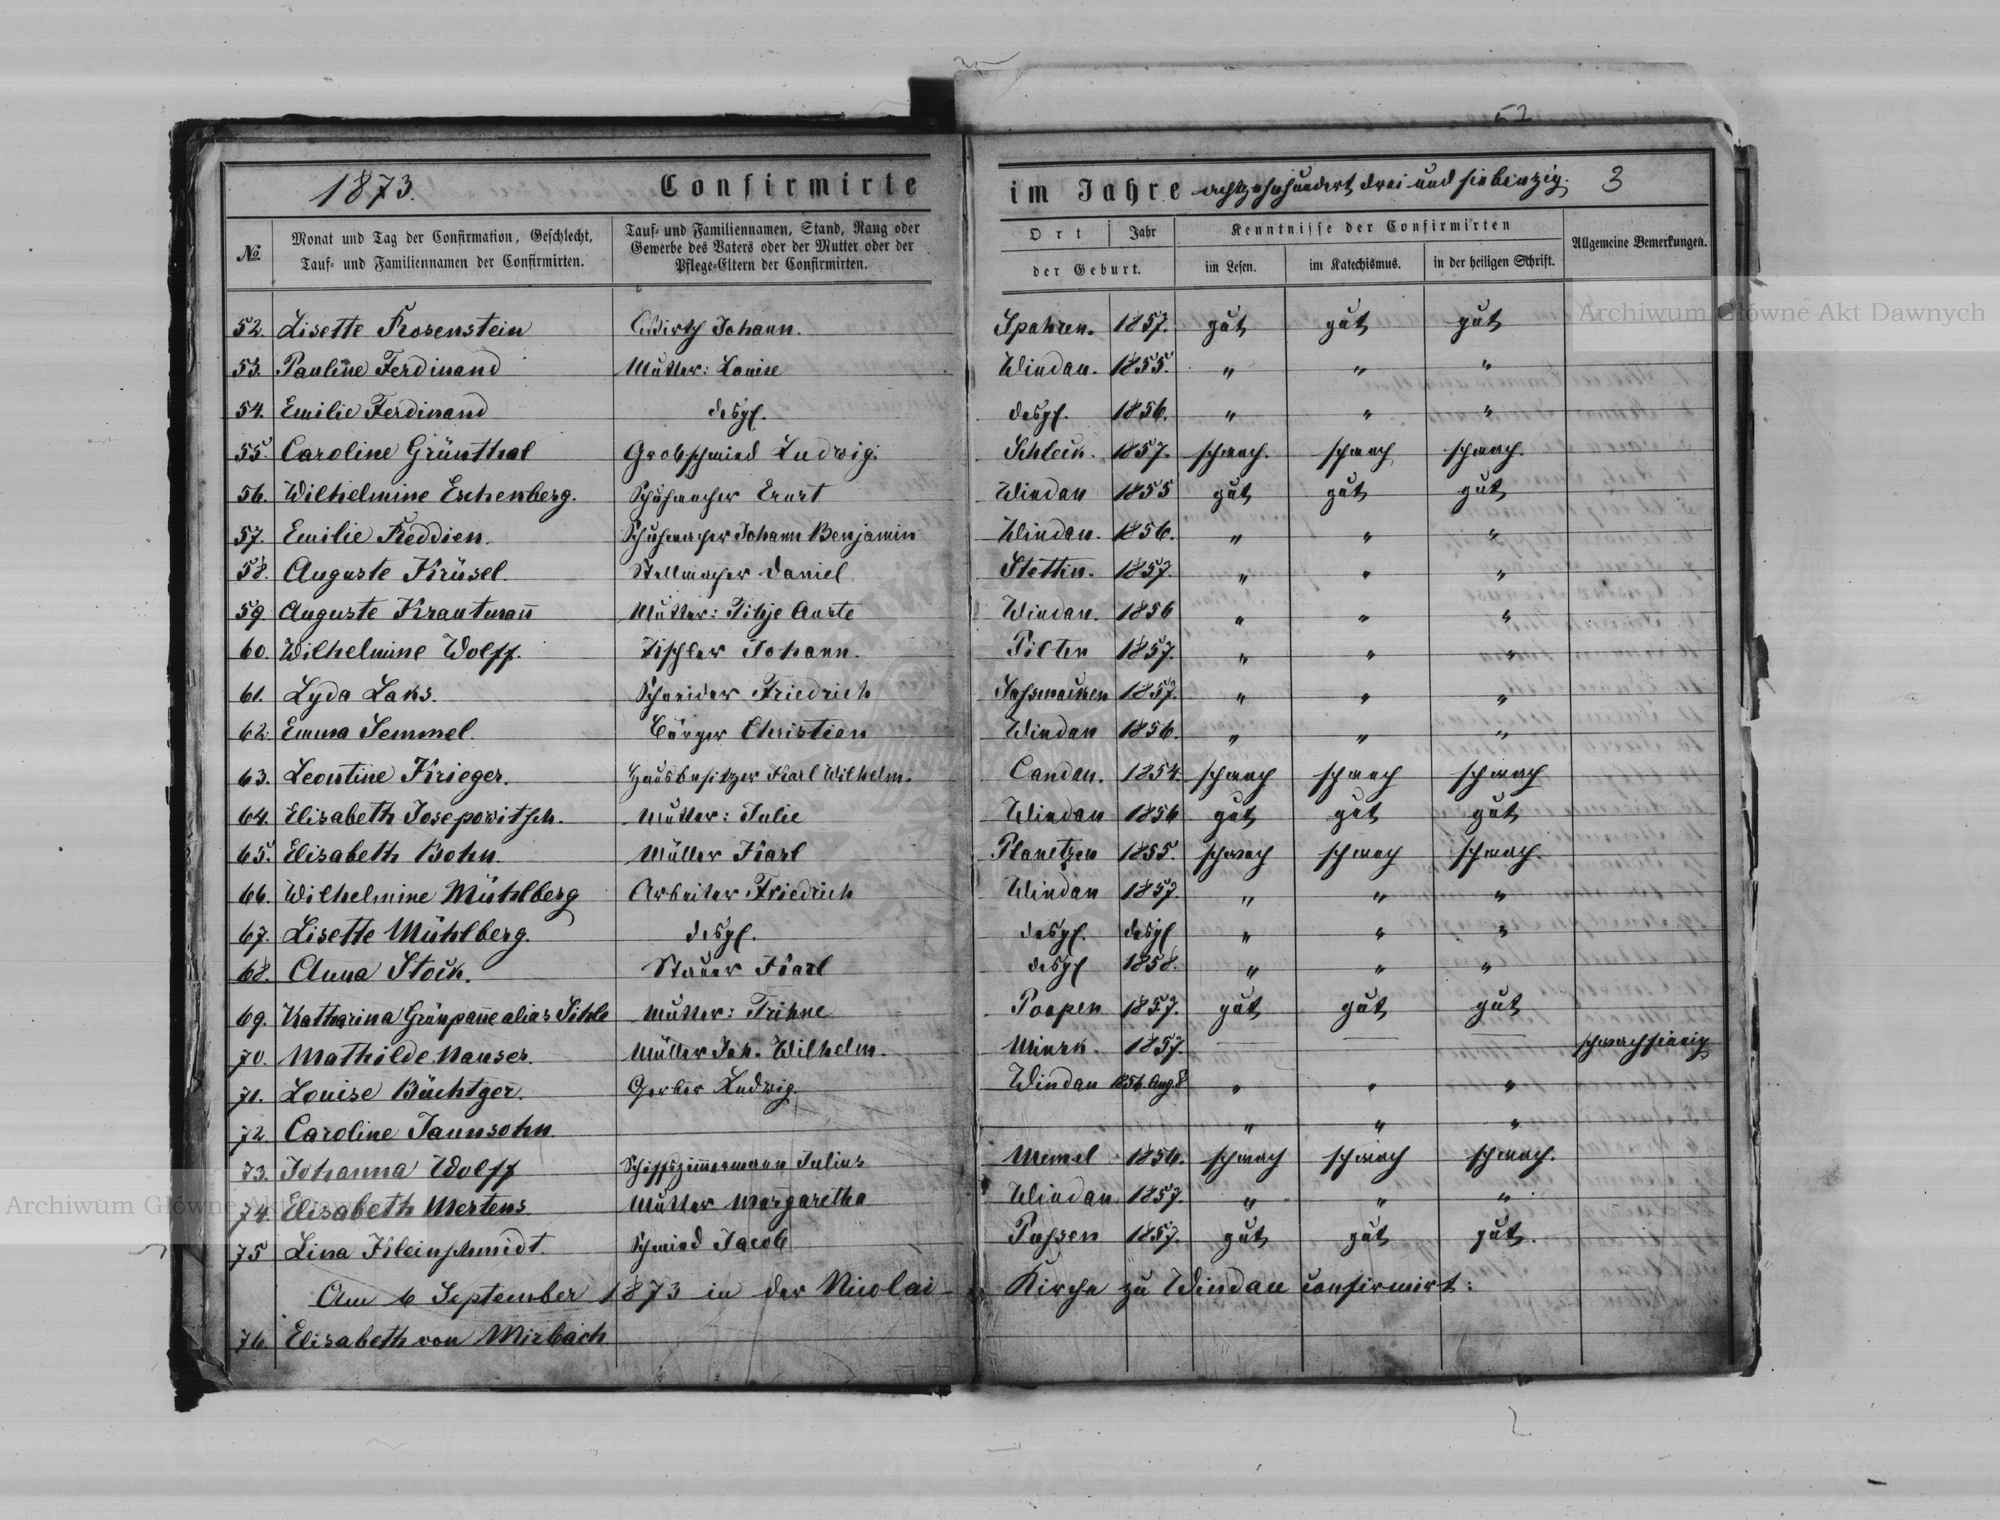 52
1873. Confirmirte im Jahre achtzehnhundert drei und siebenzig. 3
№ Monat und Tag der Confirmation, Geschlecht, Tauf- und Familiennamen der Confirmirten. Tauf- und Familiennamen, Stand, Rang oder Gewerbe des Vaters oder der Mutter oder der Pflege-Eltern der Confirmirten. Ort Jahr der Geburt. Kenntnisse der Confirmirten im Lesen. im Katechismus. in der heiligen Schrift. Allgemeine Bemerkungen.
52. Lisette Rosenstein Wirth Johann. Spahren. 1857. gut gut gut
Archiwum Główne Akt Dawnych
53. Pauline Ferdinand Mutter: Louise Windau. 1855. " " "
54. Emilie Ferdinand desgl. desgl. 1856. " " "
55. Caroline Grünthal Grobschmied Ludwig. Schleck. 1857. schwach. schwach schwach.
56. Wilhelmine Eschenberg. Schuhmacher Ernst Windau 1855 gut gut gut
57. Emilie Reddien. Schuhmacher Johann Benjamin Windau. 1856. " " "
58. Auguste Krüsel. Stellmacher Daniel Stettin. 1857. " " "
59. Auguste Krautman̄ Mutter: Windau. 1856 " " "
60. Wilhelmine Wolff. Tischler Johann. Pilten 1857. " " "
61. Lyda Laks. Schneider Friedrich Sassmacken 1857. " " "
62. Emma Semmel. Bürger Christian Windau 1856. " " "
63. Leontine Krieger. Hausbesitzer Karl Wilhelm. Candau. 1854. schwach schwach schwach
64. Elisabeth Josepowitsch. Mutter: Julie Windau 1856 gut gut gut
65. Elisabeth Bohn. Müller Karl Planetzen 1855. schwach schwach schwach.
66. Wilhelmine Mühlberg Arbeiter Friedrich Windau 1857. " " "
67. Lisette Mühlberg. desgl. desgl. desgl " " "
68. Anna Stock. Stauer Karl desgl 1858. " " "
69. Katharina Grünpan̄e alias Sihle Mutter: Trihne Poopen 1857. gut gut gut
70. Mathilde Nauser. Müller Joh. Wilhelm. 1857. — — — schwachsinnig
71. Louise Büchtger. Gerber Ludwig. Windau 1856. Aug. 8 " " "
72. Caroline Jannsohn. " " "
73. Johanna Wolff Schiffszimmermann Julius Memel 1856. schwach schwach schwach.
74. Elisabeth Mertens Mutter Margaretha Windau 1857. " " "
Archiwum Główne Akt Dawnych
75 Lina Kleinschmidt. Schmied Jacob Passen 1857. gut gut gut.
Am 6 September 1873 in der Nicolai- Kirche zu Windau confirmirt:
76. Elisabeth von Mirbach